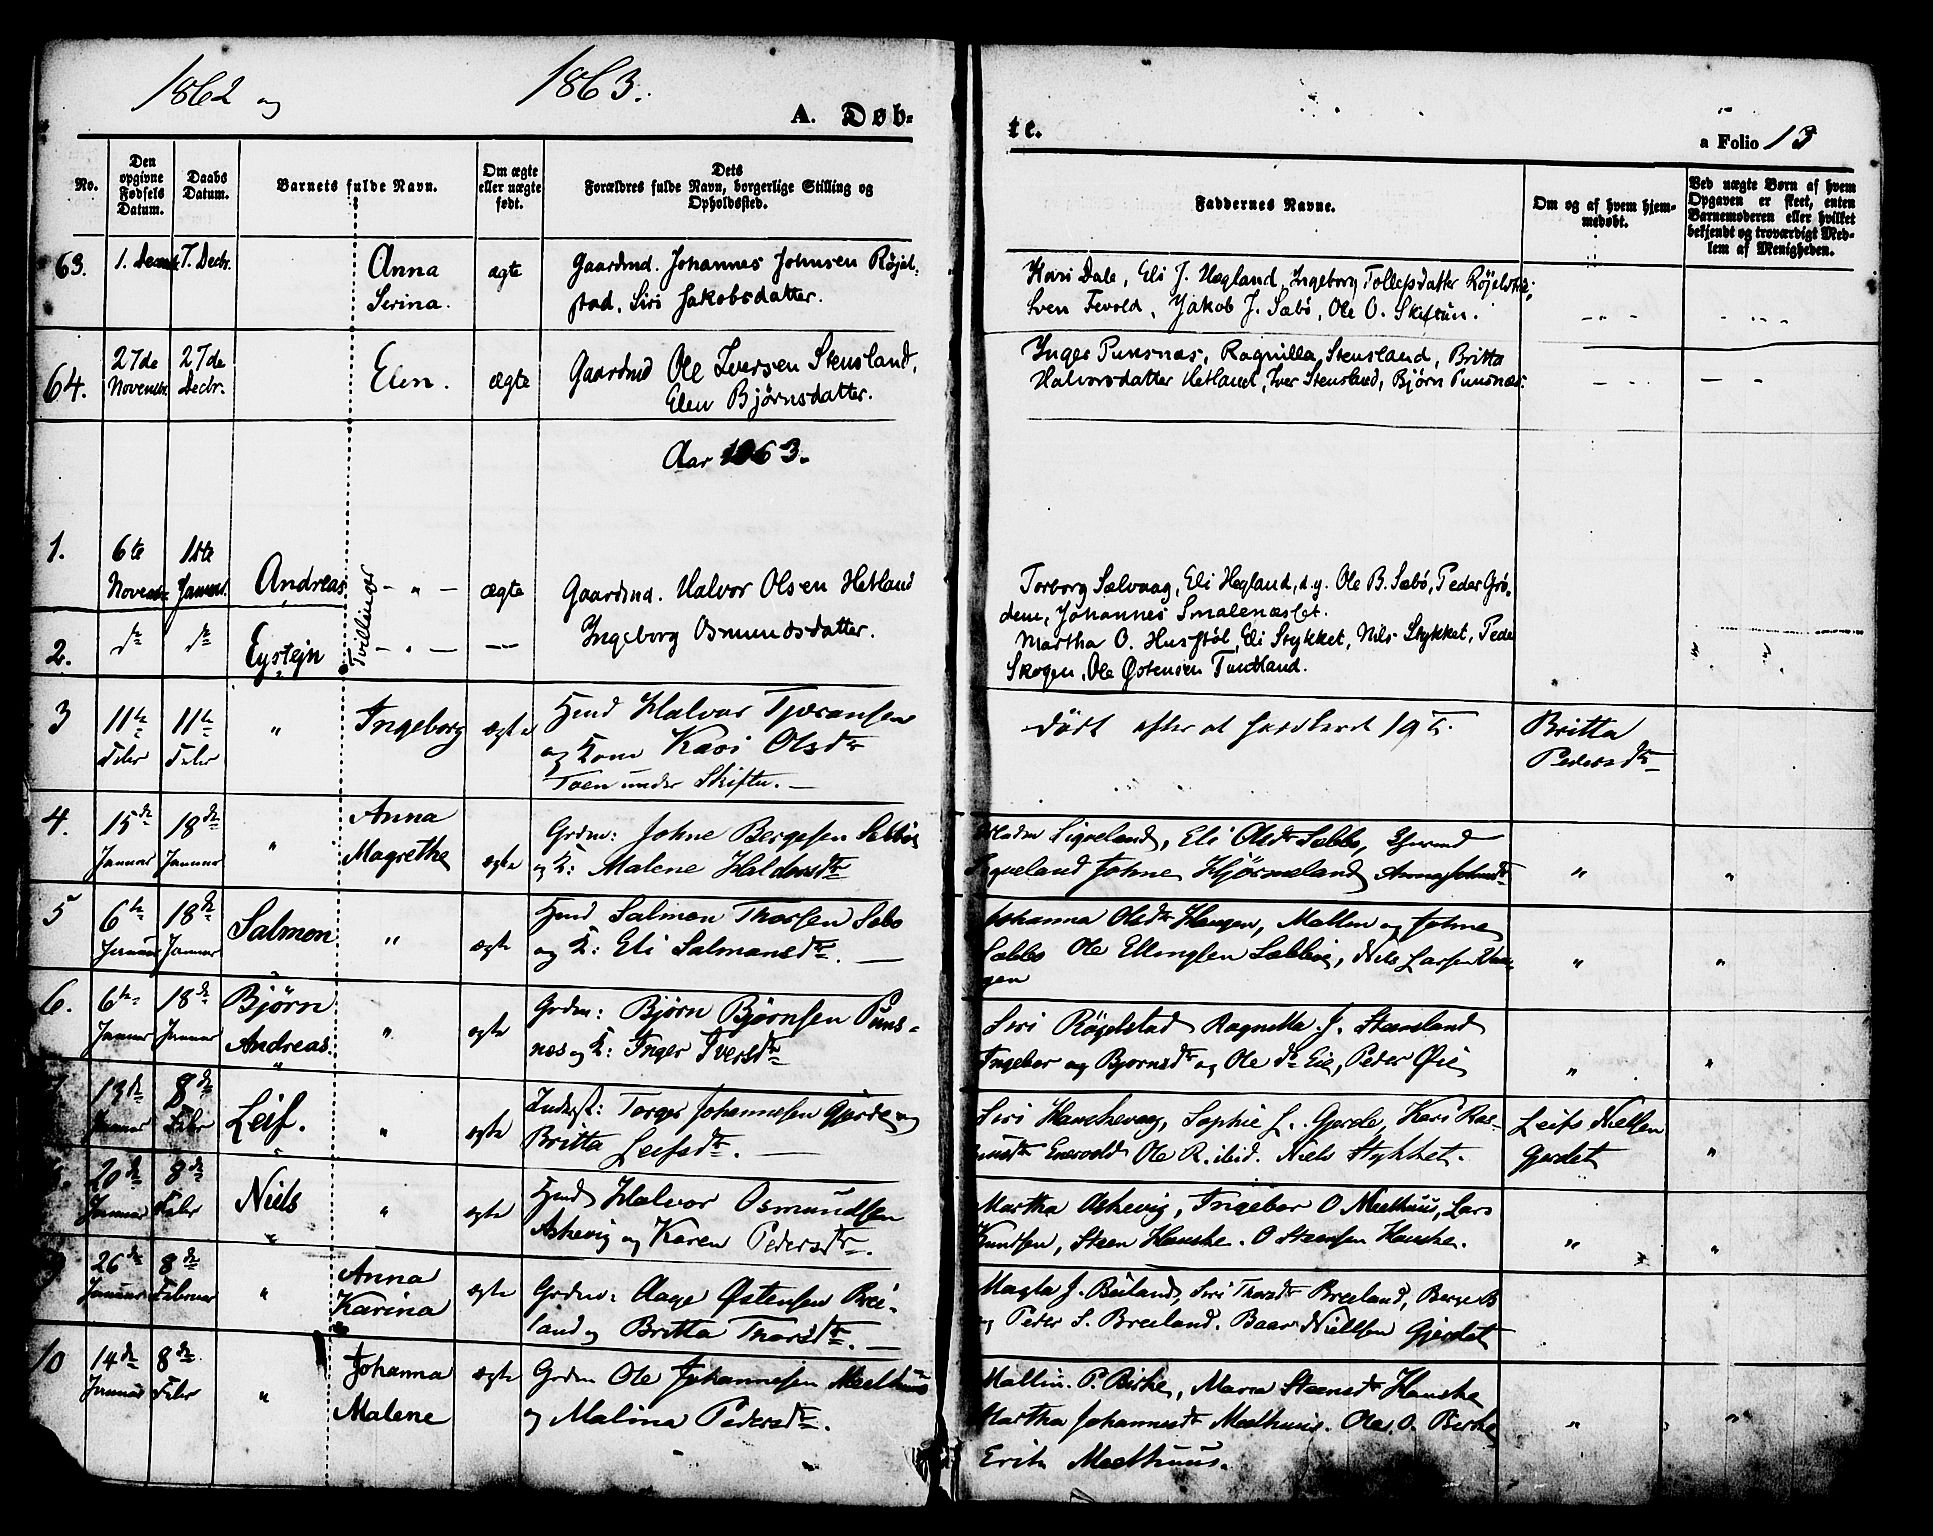 1862 og 1863.
A. Døb-
te.
a Folio 13
No.
Den opgivne Fødsels Datum.
Daabs Datum.
Barnets fulde Navn.
Om ægte eller uægte født.
Dets Forældres fulde Navn, borgerlige Stilling og Opholdssted.
Faddernes Navne.
Om og af hvem hjemmedøbt.
Ved uægte Børn af hvem Opgaven er skeet, enten Barnemoderen eller hvilket bekjendt og troværdigt Medlem af Menigheden.
63. 1. Decmb. 7. Decbr. Anna ægte Gaardmd. Johannes Johnsen Røjel-
Serina. stad. Siri Jakobsdatter.
Kari Dale, Eli J. Hegland, Ingeborg Tollefsdatter Røjelstad,
Sven Tevold, Jakob J. Sæbø, Ole O. Skiftun.
64. 27de Novembr. 27de Decbr. Elen. ægte Gaardmd Ole Iversen Stensland,
Elen Bjørnsdatter.
Inger Punsnæs, Ragnilla Stensland, Britta
Halvorsdatter Hetland, Iver Stensland, Bjørn Punsnæs.
Aar 1863.
1. 6te Novembr 1ste Januar. Andreas - " - ægte Gaardmd. Halvor Olsen Hetland
Tvillinger
Ingeborg Osmundsdatter.
Torborg Sælvaag, Eli Hegland, d.y. Ole B. Sæbø, Peder Grø-
dem, Johannes Smalenæsset.
2. do do Eystejn - " - - " -
Martha O. Husstøl, Eli Stykket, Nils Stykket, Peder
Skogen, Ole Østensen Tuntland.
3 11te Febr 11te Febr " Ingeborg ægte Hmd Halvor Tjøransen
og Kone Kari Olsdtr
Toen under Skiftu. —
Død efter at
Britta
Pedersdtr
4. 15de Januar 18de Januar " Anna
Magrethe ægte Grdm: Johne Bergesen Sæbbøe
og K: Malene Haldorsdtr
Sigveland, Eli Olsdtr Sæbbø,
Johne Hjørneland Anna Johnsdtr " "
5 6te Januar 18de Januar Salmon " ægte Hmd Salmon Thorsen Sæbø
og K: Eli Salmonsdtr. —
Johanna Olsdtr Haugen, Mallin og Johne
Sæbbø Ole Ellingsen Sæbbøe, Nils Larsen Hau-
gen " "
6. 6te Januar 18de Januar Bjørn
Andreas " ægte Grdm: Bjørn Bjørnsen Puns-
næs og K: Inger Iversdtr
Siri Røgelstad Ragnilla J. Stensland
Ingebor og Bjørnsdtr og Ole do Eie, Peder Øie " "
7 13de Januar 8de Febr Leif. " ægte Inderst: Torger Johannesen Gjerde og
Britta Leifsdtr. —
Siri Hauskevaag, Sophie L. Gjerde, Kari Ras-
musdtr Enevold Ole R. ibid. Niels Stykket.
Leifs Nielsen
Gjerdet "
8. 20de Januar 8de Febr Niels " ægte Hmd Halvor Osmundsen
Askevig og Karen Pedersdtr.
Martha Askevig, Ingebor O Meelhuus, Lars
Knudsen, Steen Hauske. O Steensen Hauske. " "
9 26de Januar 8de Februar " Anna
Karina ægte Grdm: Aage Østensen Brei-
land og Britta Thorsdtr. —
Magla J. Breiland, Siri Thorsdtr Breeland, Berge B
og Peder S. Breeland. Baar Nielsen Gjerdet
10 14de Januar 8de Febr " Johanna
Malene ægte Grdm Ole Johannesen Meelhuus
og Malina Pedersdtr.
Mallin. P. Birke, Maria Steensdtr Hauske
Martha Johannesdtr Meelhuus. Ole. O. Birke,
Erik Meelhuus. " "